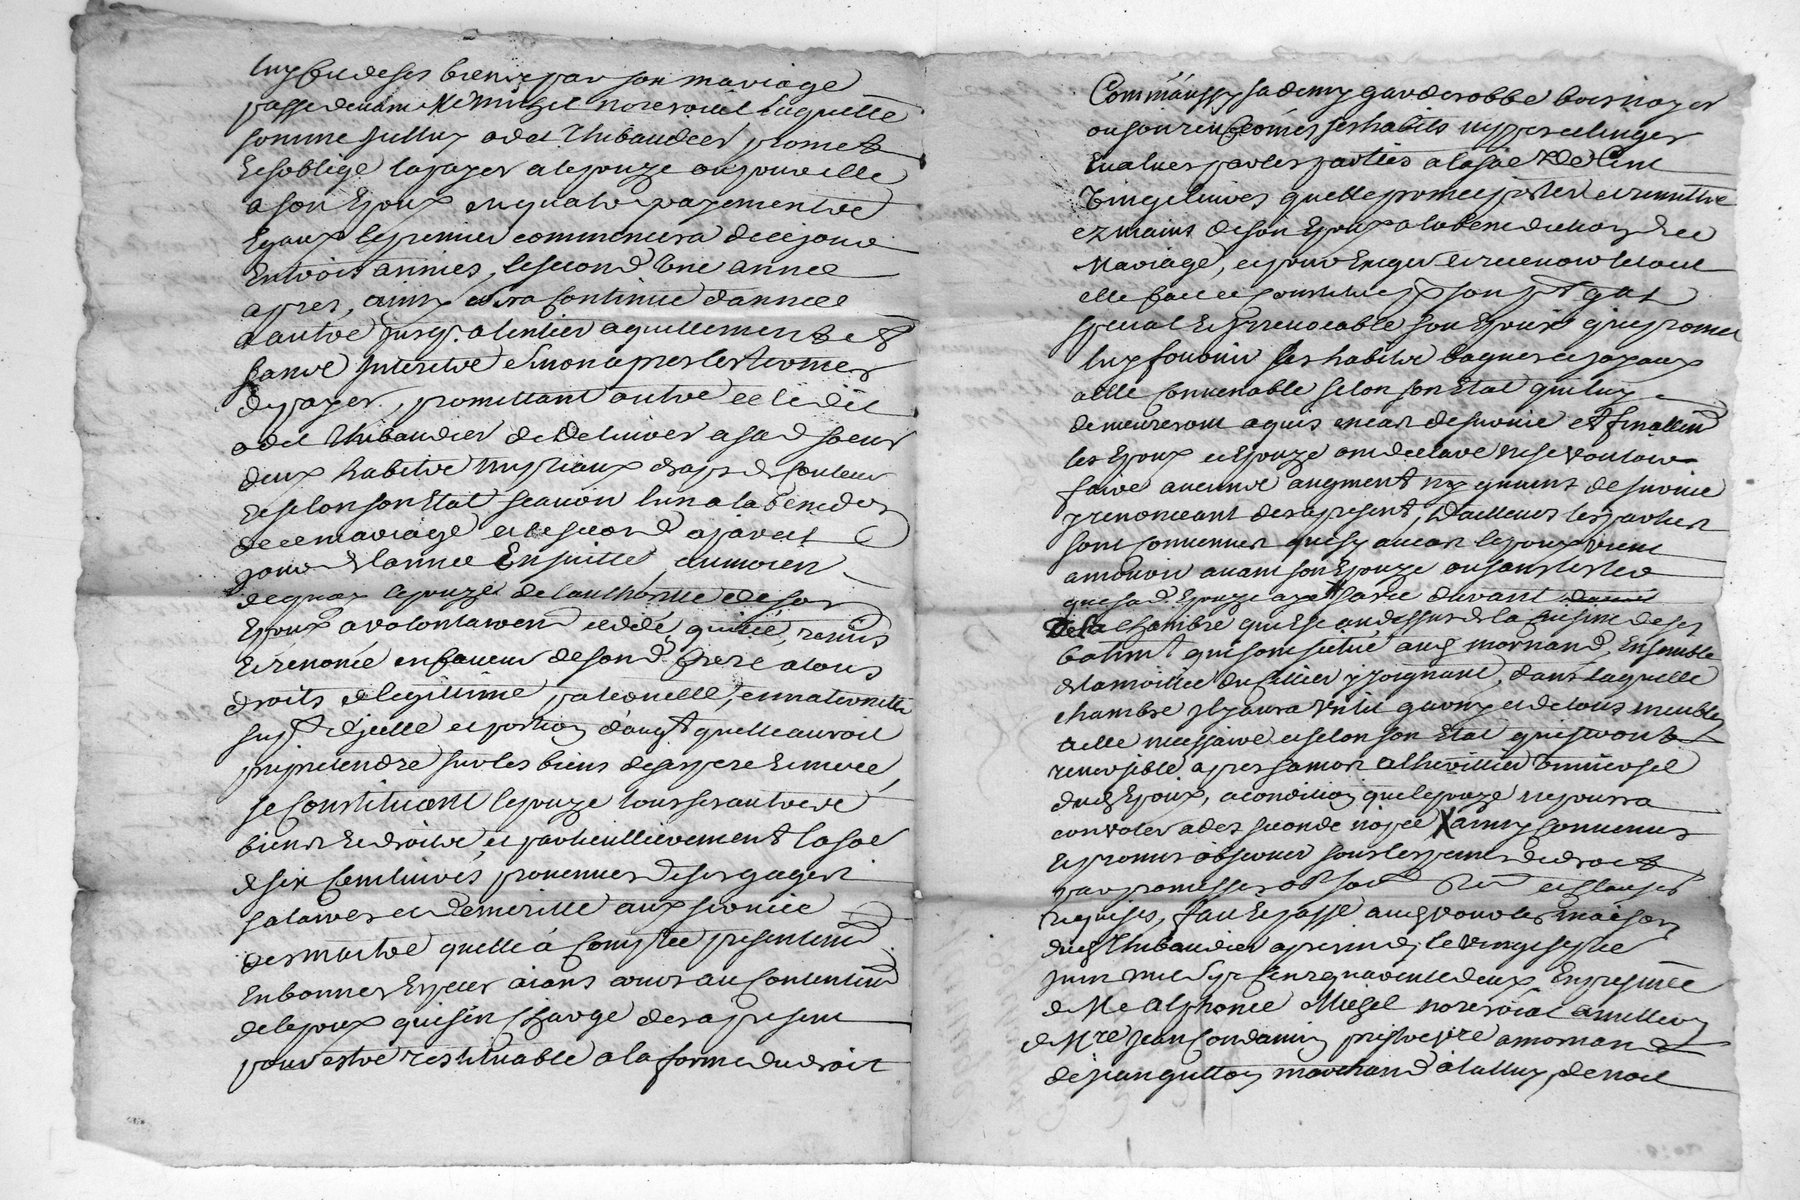 luy de ses biens par son mariage
passe devam Me Michel no.re roial laquelle
somme led. Thibaudier promet
et soblige la payer a lepouze ou pour elle
a son Epoux en quatre payementre
Egaux le premier commencera de ce jour
En trois annies, le second Une annee
apres, ainsy sera continue dannee
a autre jusq. a lentier aquittement et
sanre Interetre sinon apres les termes
de payer, promettant outre ce led.
Thibaudier de Delivrer a sa d. soeur
deux habitre nuptiaux drapt de Couleur
et selon son Etat scavoir lun a la bened.on
de ce mariage et le second a pareil
jour de lannee En suitte, au moien
de quoy lepouze de lauthorite de son
Epoux a volontairem cedde, quitté, remis
et renoncé en faveur de son d. frere a tous
droits de legitime paternelle, et maternelle
supt. dicelle et portion daugt quelle auroit
pu pretendre sur les biens de ses pere et mere,
se Constituant lepouze tous ses autre
biens et droitre, et particullierement la so.e
de six Cent livres provenues de ses gages
salaires et demeritte aux service
des maitre quelle á Comptee presentem
En bonnes Especes aians cours au Contentem
de lepoux qui sen Charge des a present
pour estre restituable a la forme du droit
Comm'aussy sa demy garderobbe bois noyer
ou son renfermés ses habits nippes et linges
Evalues par les parties a la so.e de Cent
Vingt livres quelle promet porter et remettre
ez mains de son Epoux a la benediction de ce
Mariage, et pour Exiger et recevoir le tout
elle face et constitue son
special et Irrevocable son Epoux qui promet
luy fournir ses habitre bagues et joyaux
a elle Convenable selon son Etat qui luy
demeureront aquis en cas de survie et finallem
les Epoux et Epouze ont declare ne se vouloir
faire aucune augment ny gaains de survie
y renonceant des a present, Dailleurs les parties
sont Convenues que sy au cas lepoux vient
a mourir avant son Epouze ou sans
que sa d. Epouze aye sa vie durant
De la Chambre qui Est au dessus de la Cuisine de ses
batim.t qui sont situé aud. mornand, Ensemble
de la moittie du Cellier y joignant, dans laquelle
chambre il y aura Un lit garny et de tous meubles
a elle necessaire et selon son Etat qui seront
reversible apres sa mort a lheritier Universel
dud. Epoux, a condition que lepouze ne pourra
convoler a des seconde nopce X ainsy Convenus
Et promis observer sous les peines de droit
par promesses obt. soum et clauses
requises, fait et passé aud. maison
dud. Thibaudier apres midy le vingt sept
juin mil Sept Cent quarente deux En presence
de Me Alphonce Michel no.re roial a
de Mre jean Condamin prestre a mornand
de jean guillon marchand á de noel